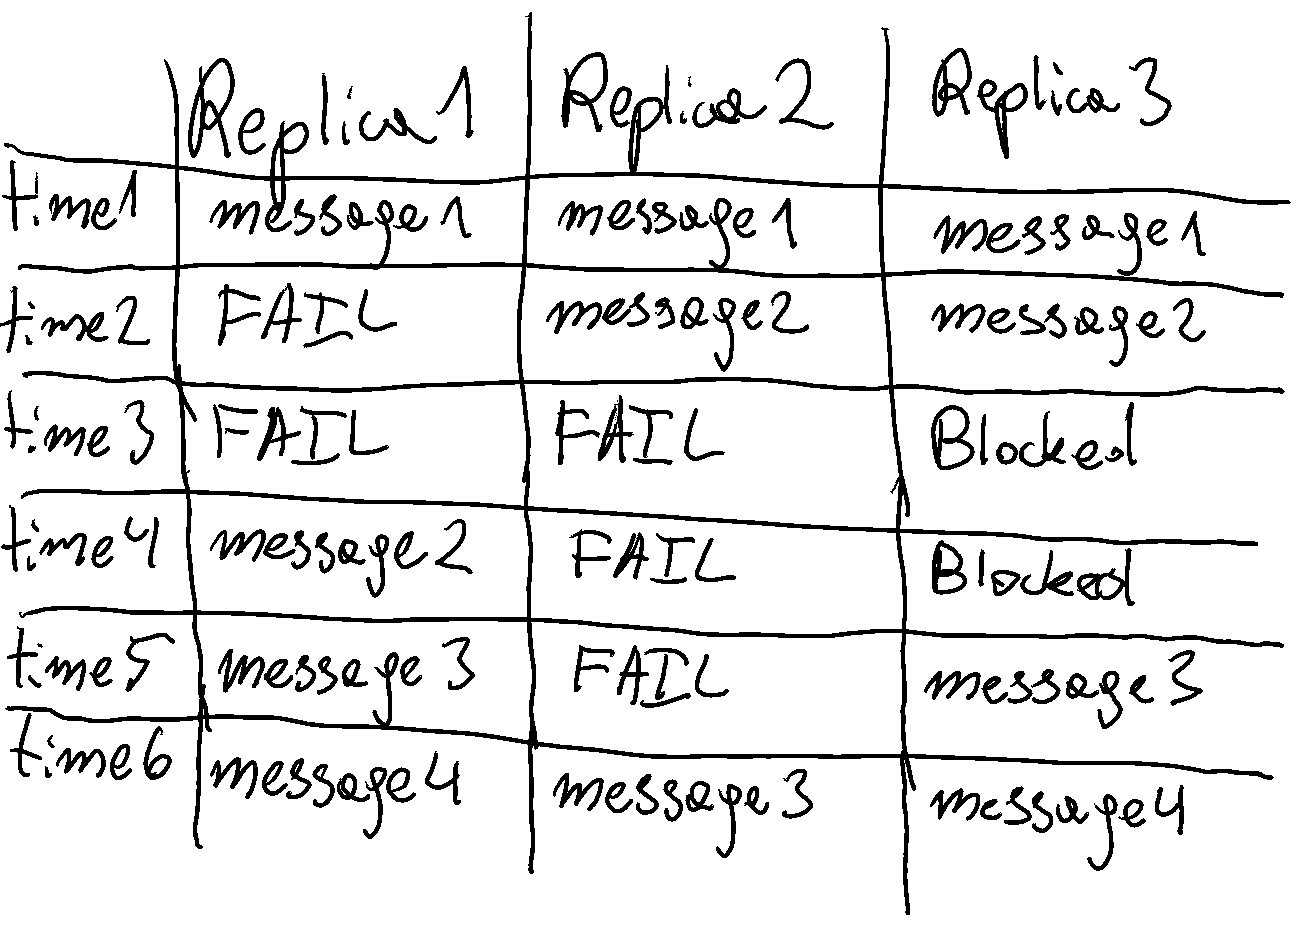 Replica 1 Replica 2 Replica 3
time1 message1 message1 message1
time2 FAIL message2 message2
time3 FAIL FAIL Blocked
time4 message2 FAIL Blocked
time5 message3 FAIL message3
time6 message4 message3 message4